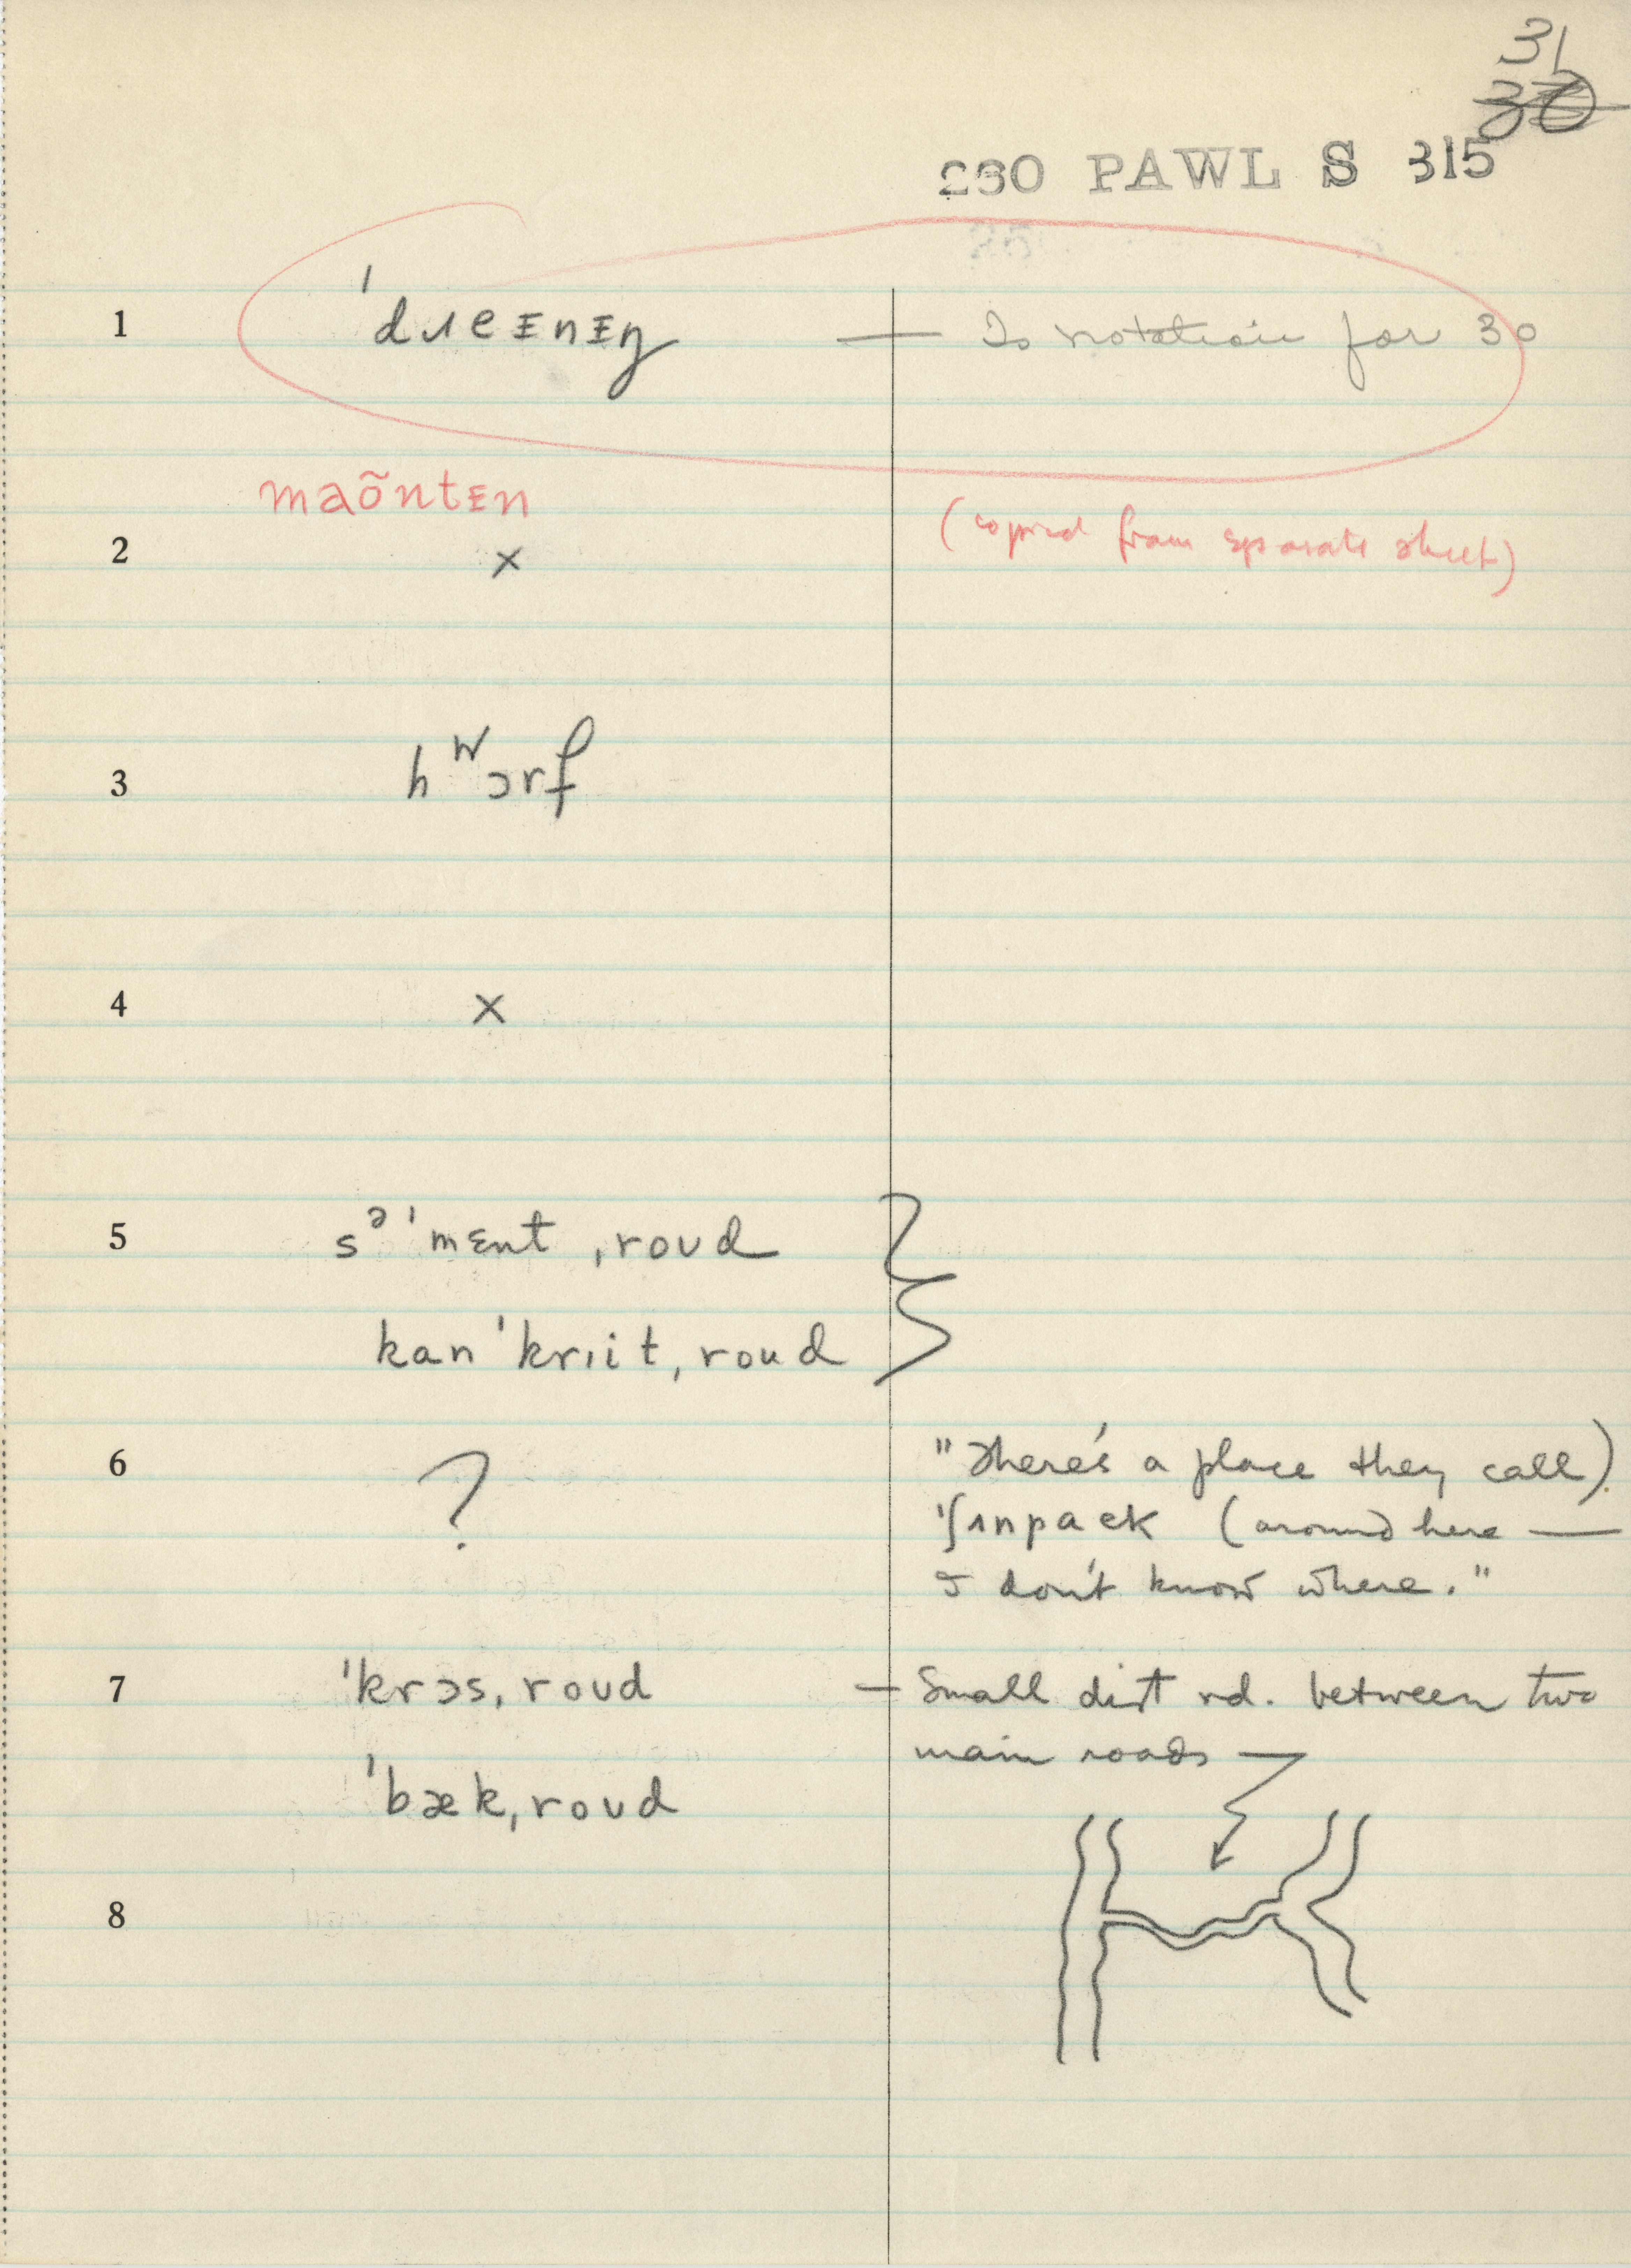 31
30
230 PAWL S 315
25
1 ˈdɹeᴇnᴇŋ — Is notation for 30
maõntᴇn
2 × (copied from separate sheet)
3 hʷɔrf
4 ×
5 sᵊˈmɛnt ˌroʊd
kanˈkrɪitˌroud
6 ? "There's a place they call)
ˈʃɪnpaek (around here —
I don't know where."
7 ˈkrɔsˌroʊd — Small dirt rd. between two
main roads
ˈbækˌroʊd
8